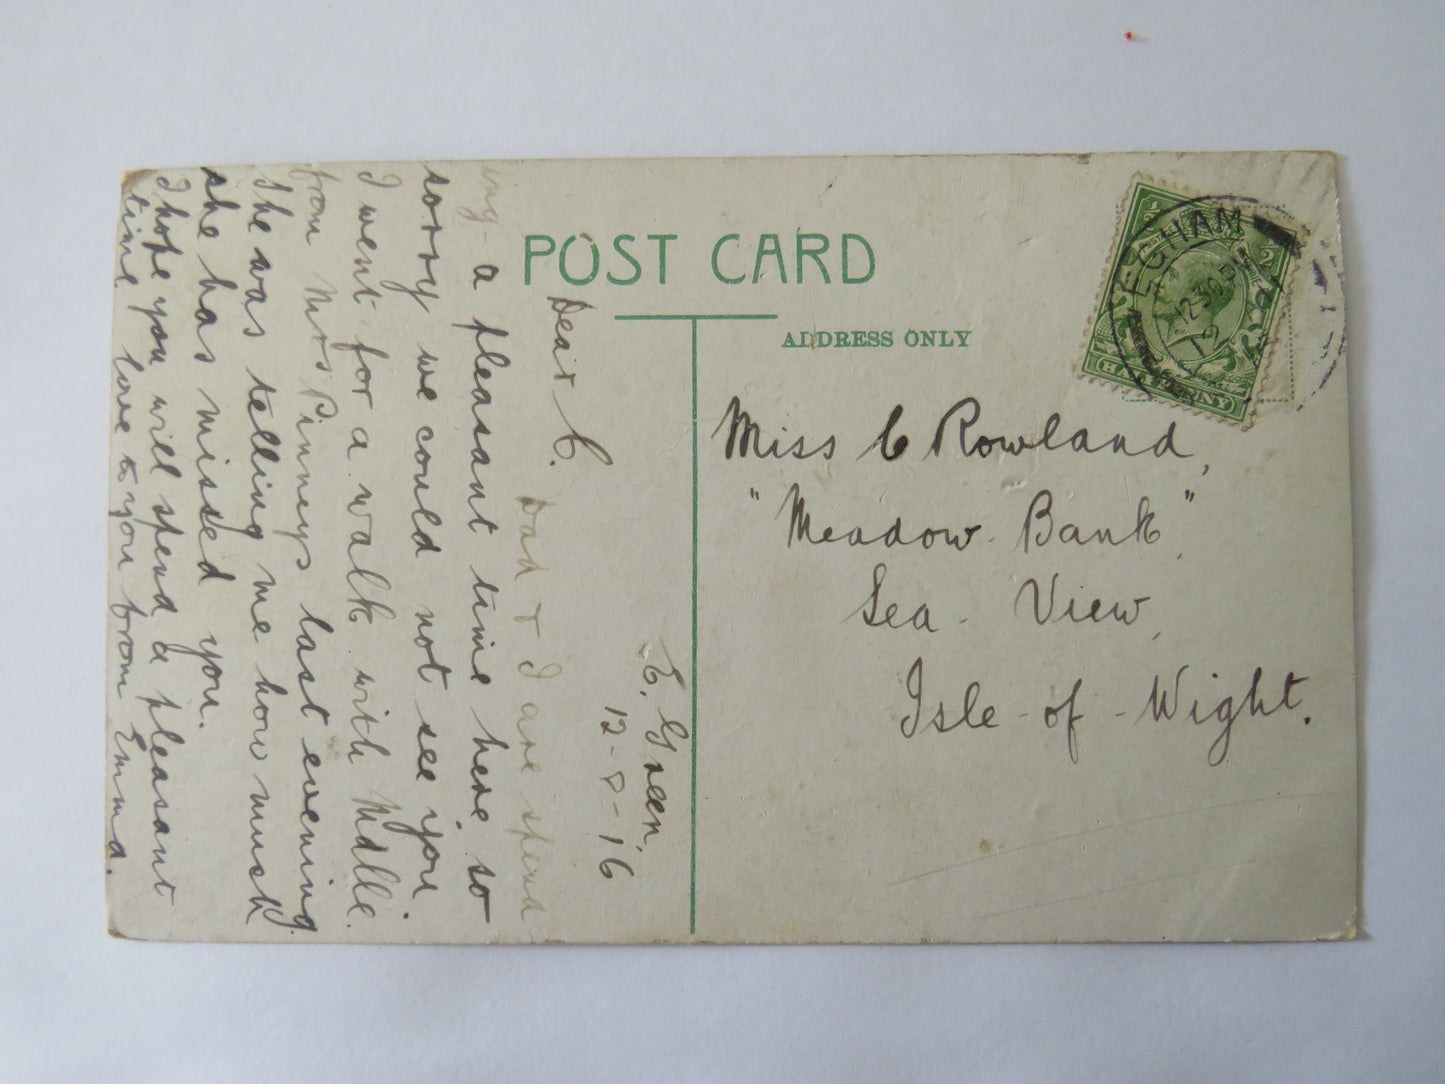 POST CARD
ADDRESS ONLY
EGHAM
12
HALFPENNY
Miss C Rowland,
"Meadow Bank",
Sea View,
Isle-of-Wight.
E. Green,
12-8-16
Dear C.
Dad & I are spend-
ing a pleasant time here so
sorry we could not see you.
I went for a walk with Mollie
from Mrs Pinneys last evening.
She was telling me how much
she has missed you.
I hope you will spend a pleasant
time love to you from Emma.